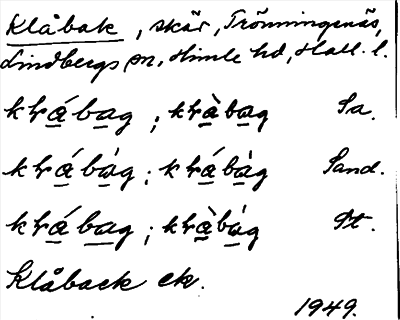 Klåbak, skär, Trönningenäs,
Lindbergs sn, Himle hd, Hall. l.
krábag ; kràbag Sa.
krábàg ; krábàg Sand.
krábag ; kràbág St.
Klåback ek.
1949.